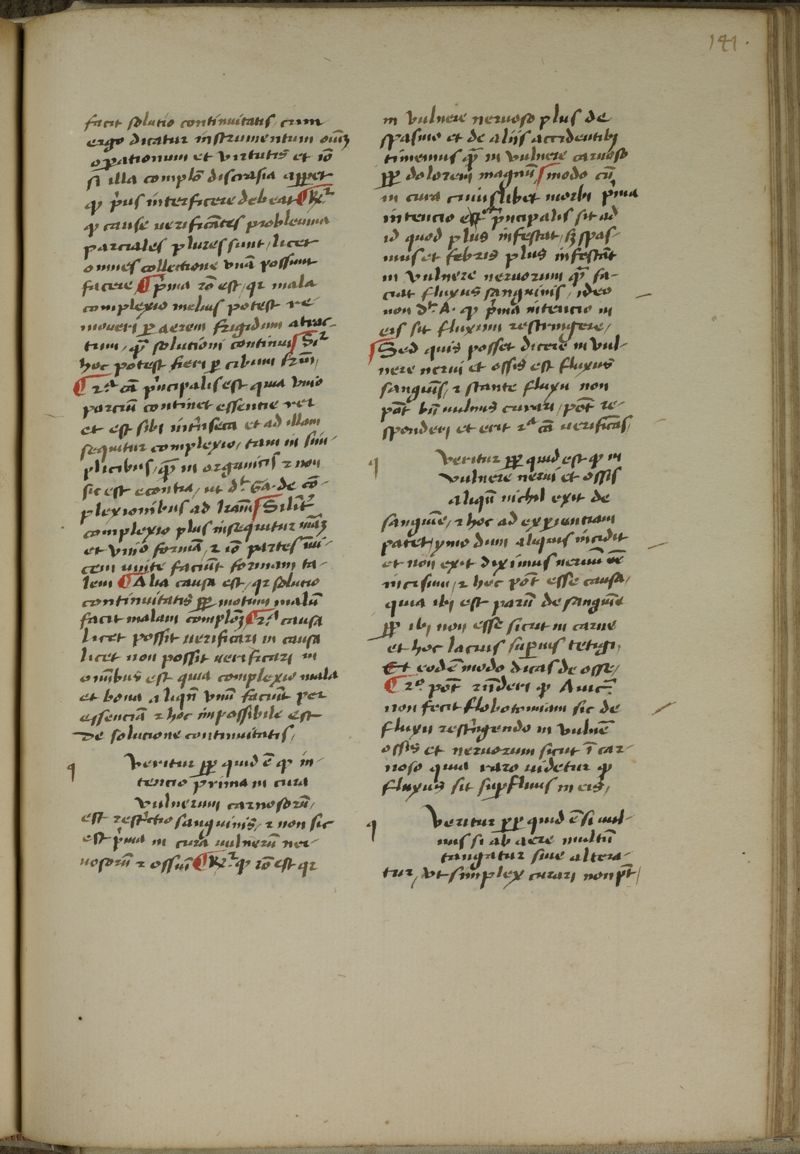 141.
facit solutio continuitatis, cum
ergo dicatur instrumentum oīm̄
oꝑationum et virtutis et iō
si illa complō discrasia apꝑet
ꝙ pͥus interficere debeat R͛
ꝙ cause uerificātes probleuma
parciales plures sunt, licet
omnes collectione vnā possunt
facere pͥma rō est, qꝛ mala
complexio melius potest re-
moueri ꝑ aerem frigidum atrac-
tum, qͣ̄ solutioni continui Siͤ
hoc potest fieri ꝑ cibum
2ᵃ cā pͥncipalis est quia vnio
parciū continet essentie rei
et est sibi intͥnseca et ad illam
sequitur complexio, tam in sim-
plicibus, qͣ̄ in organicis ⁊ non
sic est econtra, ut d. Ga. de cō-
plexionibus ad lr̄am Siliͭ
complexio plus insequitur
et vnio formā, ⁊ iō partes
cem vnite faciūt formam ta-
lem Alia causa est, qꝛ solutio
continuitatis ꝓꝑ motum malū
facit malam complōꝫ 2ᵃ causa
licet possit uerificari in causa
licet non possit uerificari in
omībus est quia complexio mala
et bona aliqn̄ vnū faciūt per
essenciā ⁊ hoc impossibile est
De solucione continuitatis,
¶ Veritur ꝓꝑ quid ē ꝙ in-
tencio prima in cura
vulnerum carnosorū,
est restͥctio sanguinis, ⁊ non sic
est pͥma in cura uulnerū ner-
uosorū ⁊ ossiū R͛ ꝙ rō est qꝛ
in vulnere neruoso plus de
spasmo et de aliis accidentibꝰ
timemus qͣ̄ in vulnere carnoso
ꝓꝑ dolorem magnū, modo cū
in cura cuiuslibet morbi pͥma
intencio pͥncipalis sit ad
id quod plus infestat, sꝫ spas-
mus et febris plus infestāt
in vulnere neruorum qͣ̄ fa-
ciat fluxus sanguinis, ideo
non d. A. ꝙ pͥma intencio in
eis sit fluxum restringere,
Sed quis posset dicere in vul-
nere nerui et ossis est fluxus
sanguīs, ⁊ stante fluxu non
pōt bn̄ uulnus curari, pōt re-
sponderi et erit 2ᵃ cā uerificās,
¶ Veritur ꝓꝑ quid est ꝙ in
vulnere nerui et ossis
aliqn̄ nichil exit de
sanguīe, ⁊ hoc ad expͥentiam
patet, ymo dum aliquis incidit
et non exit diximus neruū
incisum, ⁊ hoc pōt esse causa,
quia ibi est parū de sanguīe
ꝓꝑ ibi non esse sicut in carne
et hoc lacius suꝑius tetigi,
Et eodē modo dicas de osse,
2ᵒ pōt rn̄deri ꝙ Auicͣ
non fecit flobotomiam sic de
fluxu restͥngendo in vulnē
ossis et neruorum sicut ī car-
noso quia raro uidetur ꝙ
fluxus sit suꝑfluus in eis,
¶ Veritur ꝓꝑ quid ē si uul-
nus si ab aere multū
tangatur siue altera-
tur, vt simplex curari non pōt,